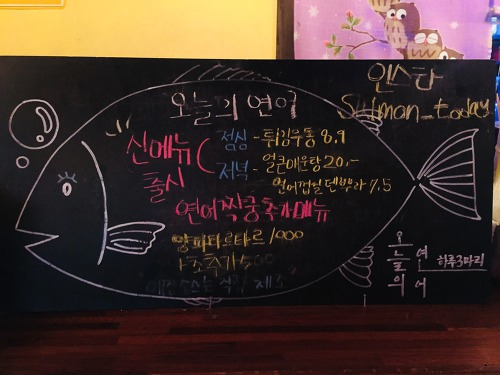 오늘의 연어
신메뉴 출시
점심 - 튀김우동 8.9
저녁 - 얼큰매운탕 20.-
연어껍질덴뿌라 7.5
연어짝궁추가메뉴
양파타르타르 1000
추가 500
인스타
Salmon_today
오늘의 연어
하루3마리